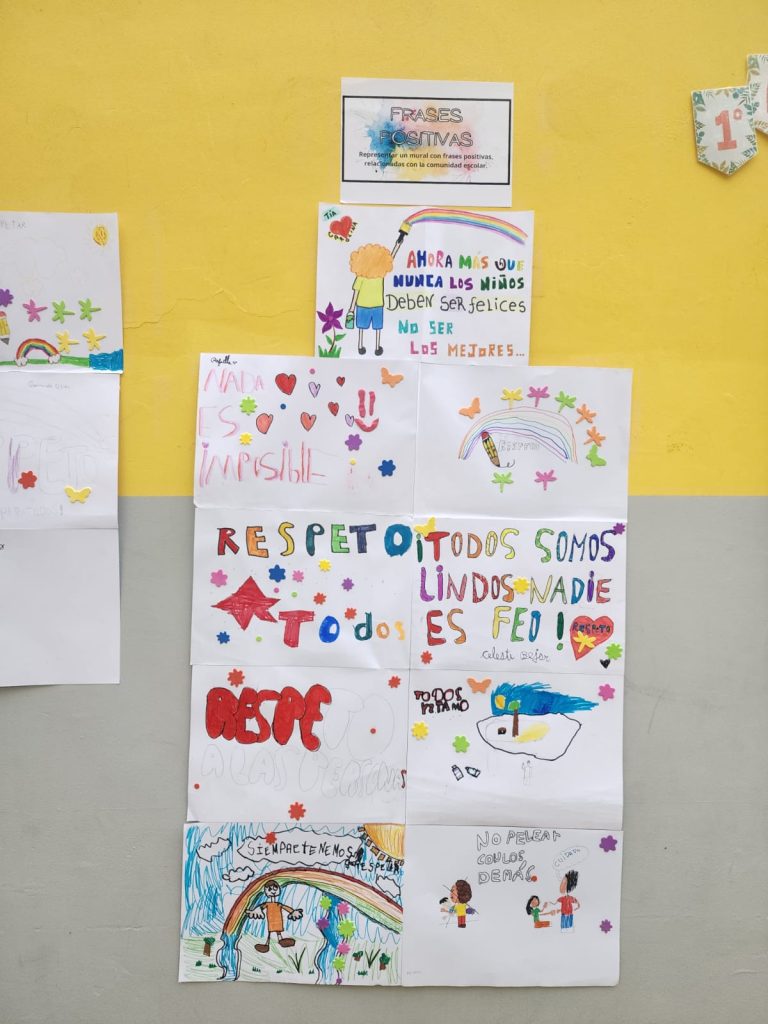 FRASES
POSITIVAS
Representar un mural con frases positivas,
relacionados con la comunidad escolar.
1°
TíA
AHORA MÁS QUE
NUNCA LOS NIÑOS
DEBEN SER felices
NO SER
LOS MEJORES...
NADA
ES
iMPOSIBLE
RESPETO
RESPETO
TOdos
¡TODOS SOMOS
LINDOS NADIE
ES FEO!
RESPETO
celeste Bejar
RESPETO
A LAS PERSONAS
TODOS
SIEMPRE TENEMOS
NO PELEAR
CON LOS
DEMÁS
PETAR